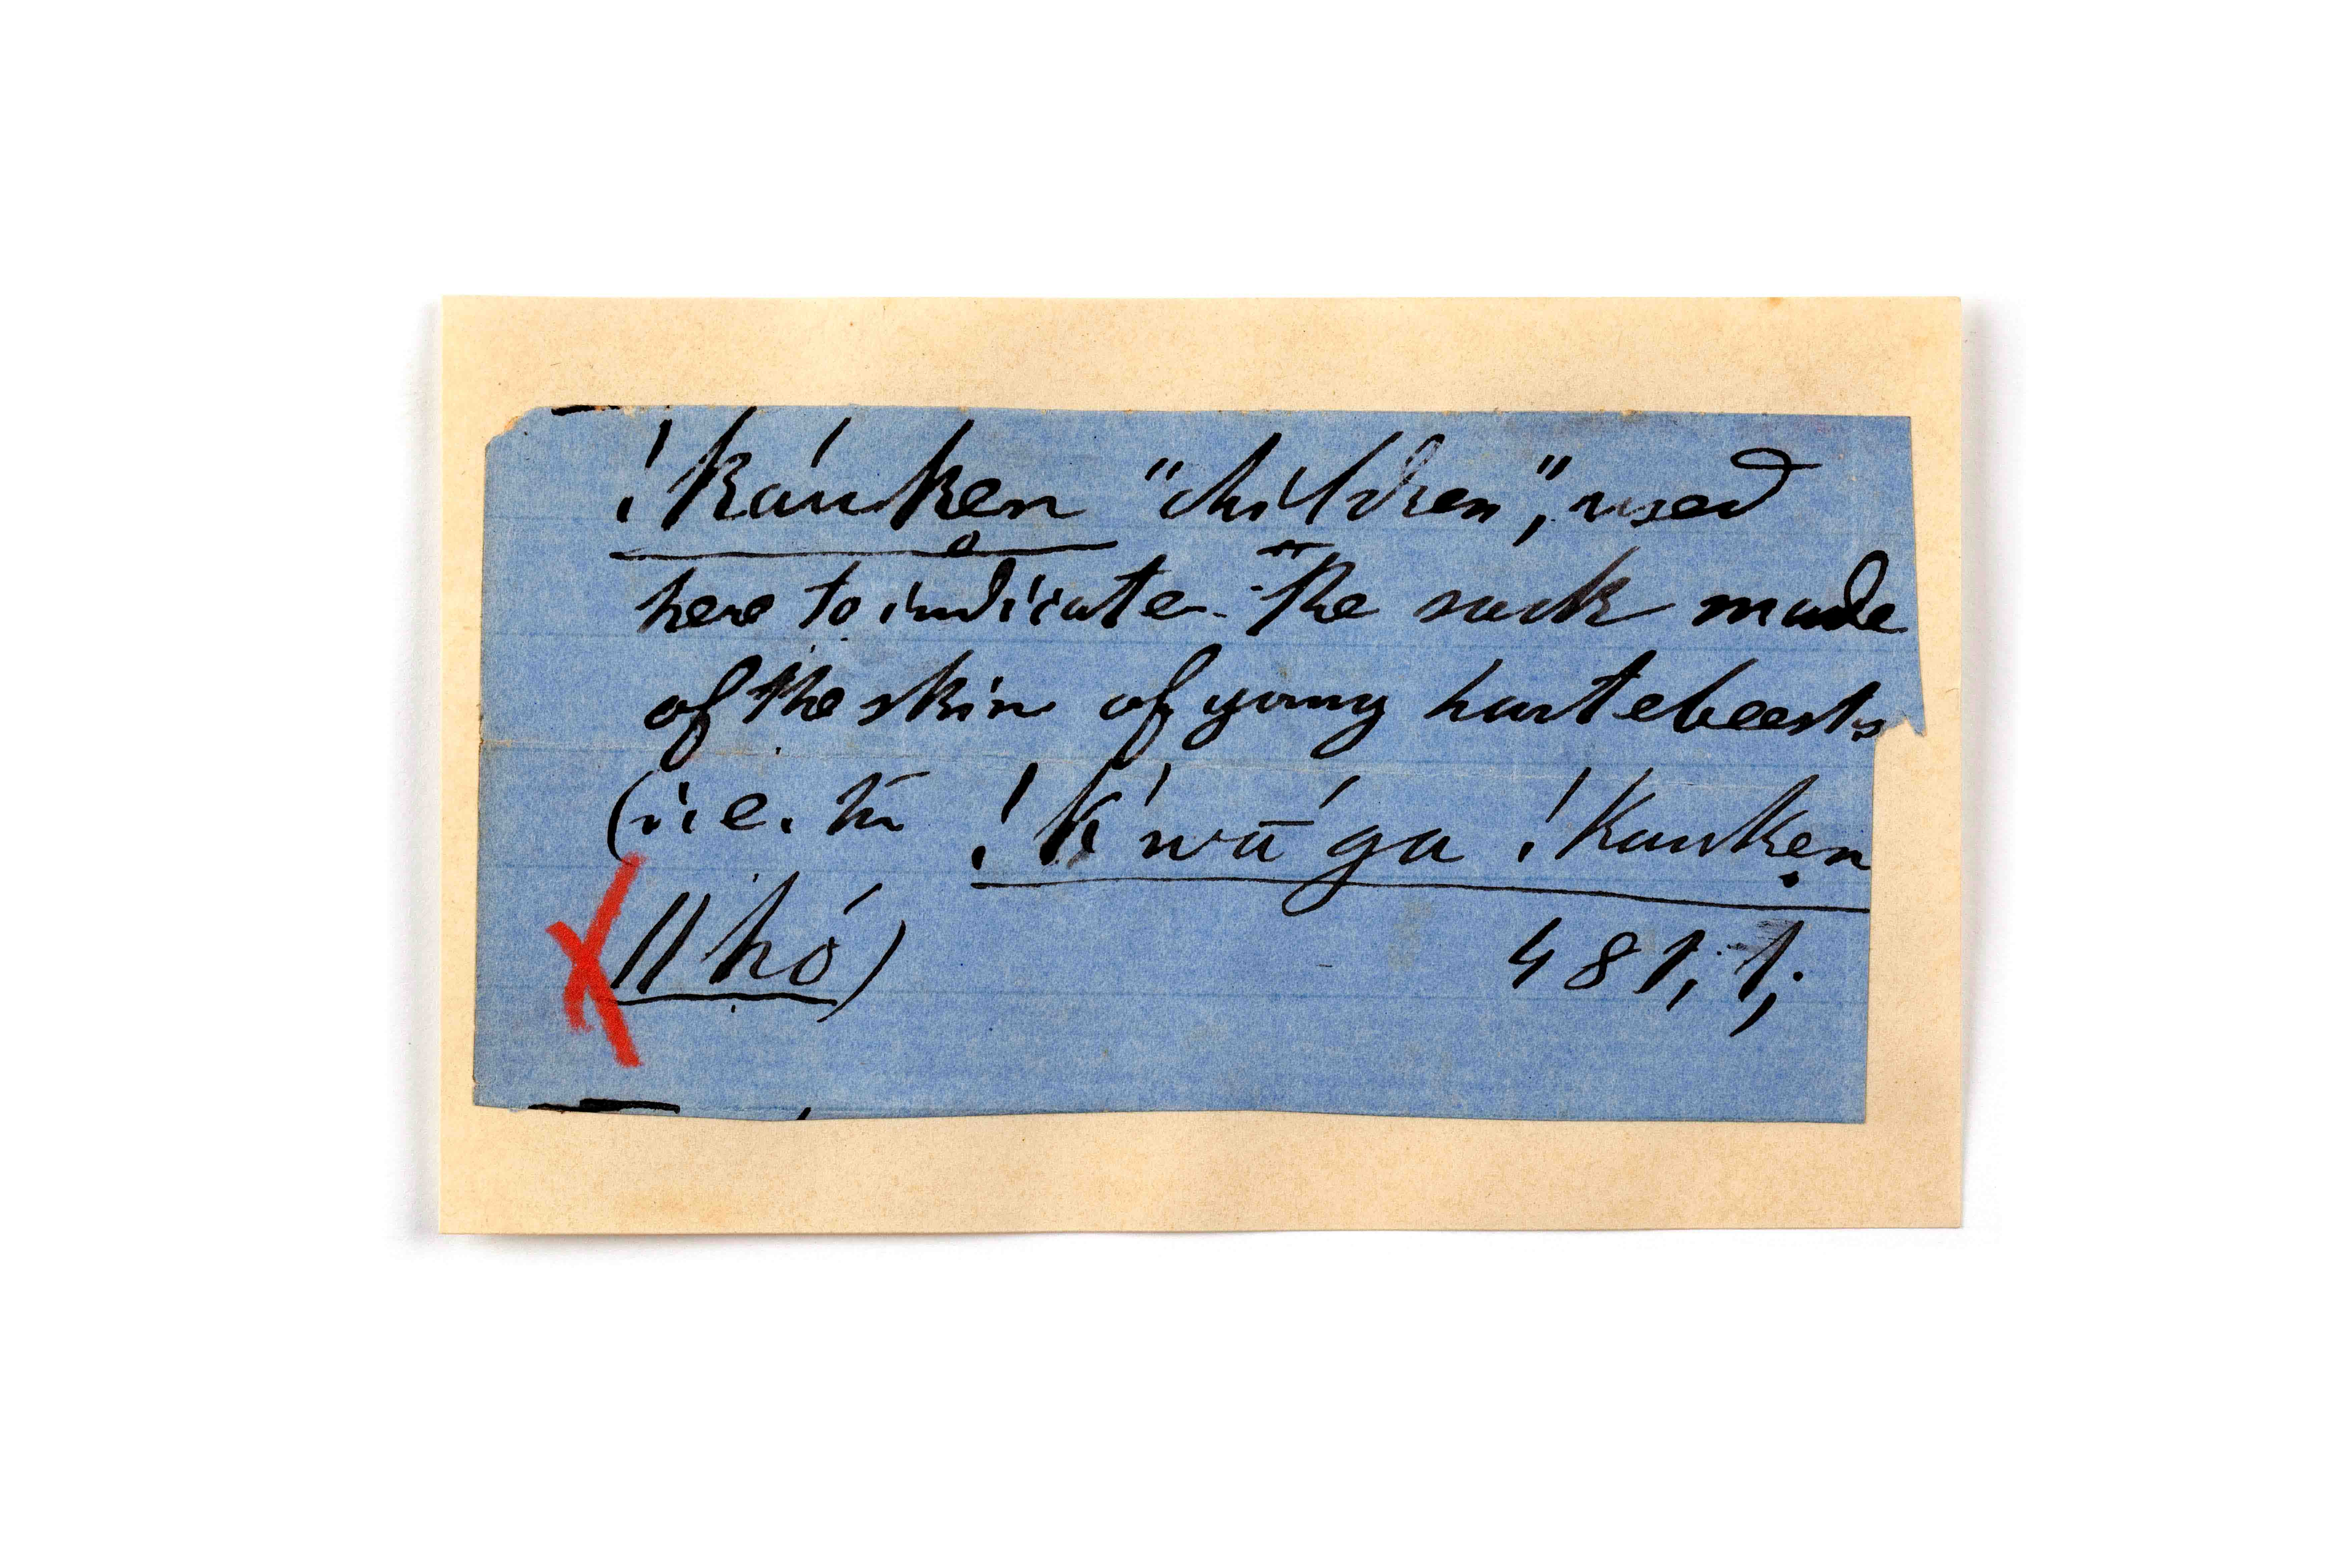 !káuken "children", used
here to indicate the sack made
of the skin of young hartebeests
(i.e. !k'wā́ga !kauken
ǁhó) 481, 1,